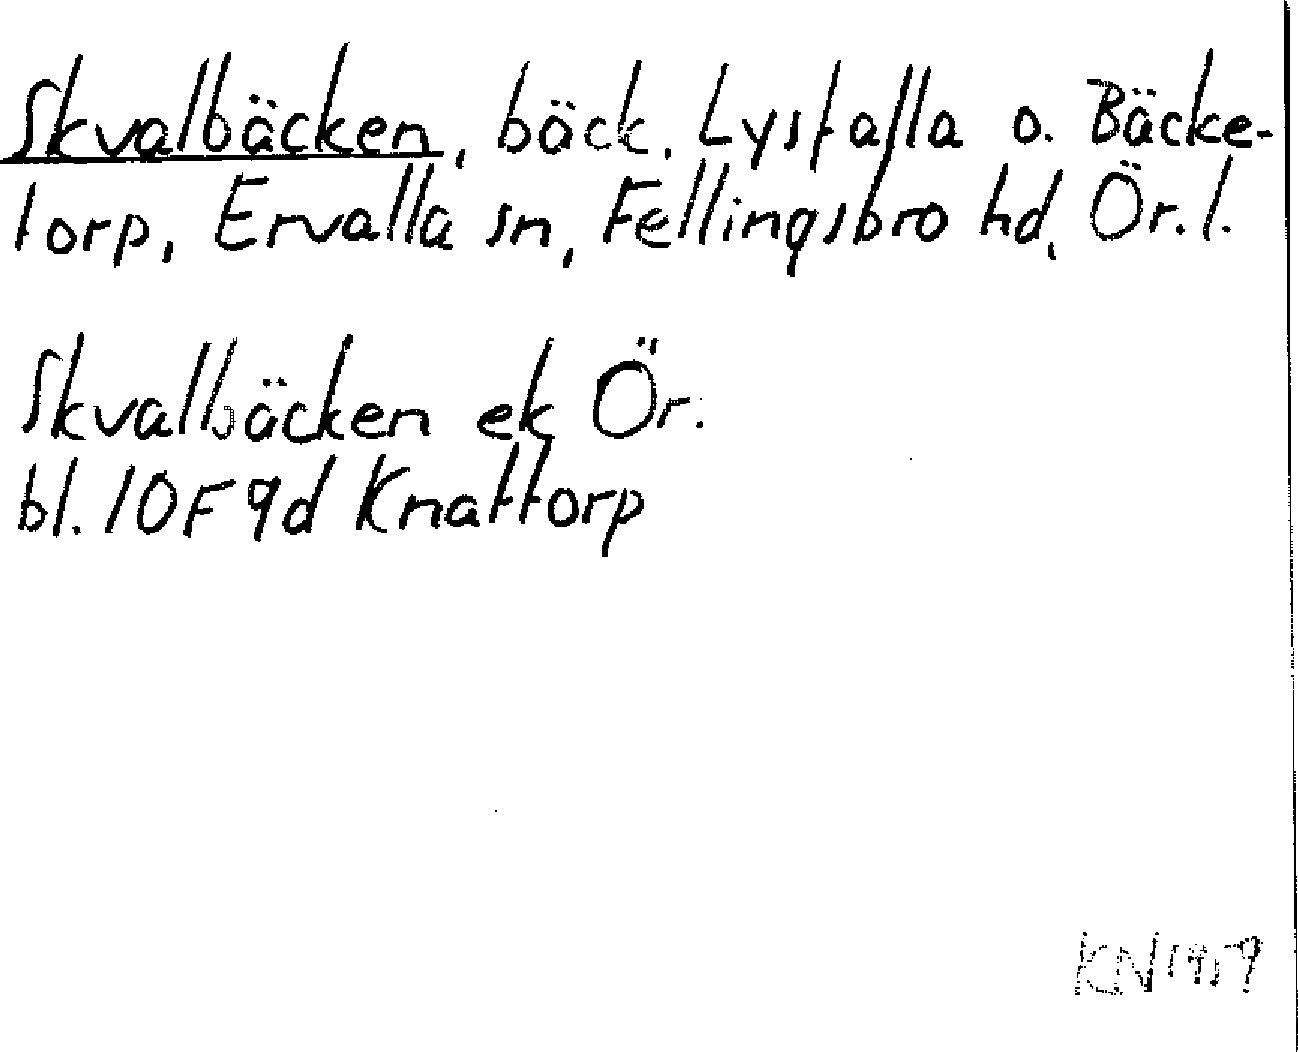 Skvalbäcken, bäck. Lystalla o. Bäcke-
torp, Ervalla sn, Fellingsbro hd, Ör. l.
Skvalbäcken ek Ör.
bl. 10F 9d Knattorp
KN 1959